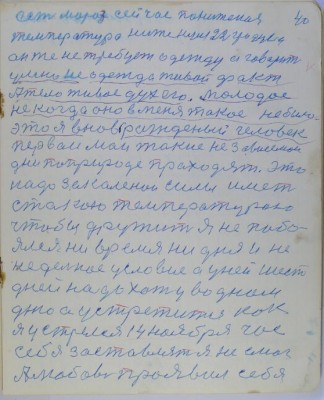 40
сет мороз сейчас пониженая
температура ниже нуля 22 градуса
а н те не требует одежду а говорит
не одежда живой факт
А тело живое духего. молодое
некогда оно в меня такое небыло
это я вновь рожденый человек
первай мам такие не зависемай
дни по природе праходят. Это
надо закаленаю силы имет
с такою температураю
чтобы дружит Я не пабо
ялся ни время ни дня и не
неделное условие а уней шест
дней надъ хажу водном
дно а устретится как
я устрелся 14 ноября час
себя заставлят я не смог
А любовь проявил себя